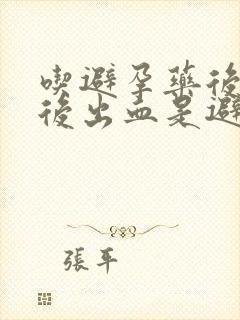 喫避孕藥後
後出血是避
張平